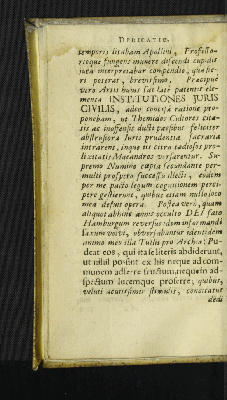 DEDICATIO.
temporis litabam Apollini, Professo-
rioque fungens munere discendi cupidis
jura interpretabar compendio, qua fie-
ri poterat, brevissimo, Præcipuè
vero Artis hujus sat latè patentis ele-
menta INSTITUTIONES JURIS
CIVILIS, adeo concisâ ratione pro-
ponebam, ut Themidos Cultores cita-
tis ac inoffensis ductu passibus feliciter
abstrusiora Juris prudentiæ sacraria
intrarent, inque iis citra tædiosos pro-
lixitatis Mæandros versarentur. Su-
premo Numine cæpta secundante per-
multi prospero successu illecti, eadem
per me pacto legum cognitionem perci-
pere gestierunt, quibus etiam nullo loco
mea defuit opera. Postea verò, quam
aliquot abhinc annis occulto DEI fato
Hamburgum reversus idem informandi
saxum volvi, obversabantur identidem
animo meo illa Tullii pro Archia: Pu-
deat eos, qui ita se literis abdiderunt,
ut nihil possint ex his neque ad com-
munem adferre fructum, neque in ad-
spectum lucemque proferre; quibus,
veluti acutissimis stimulis, concitatus
dedi